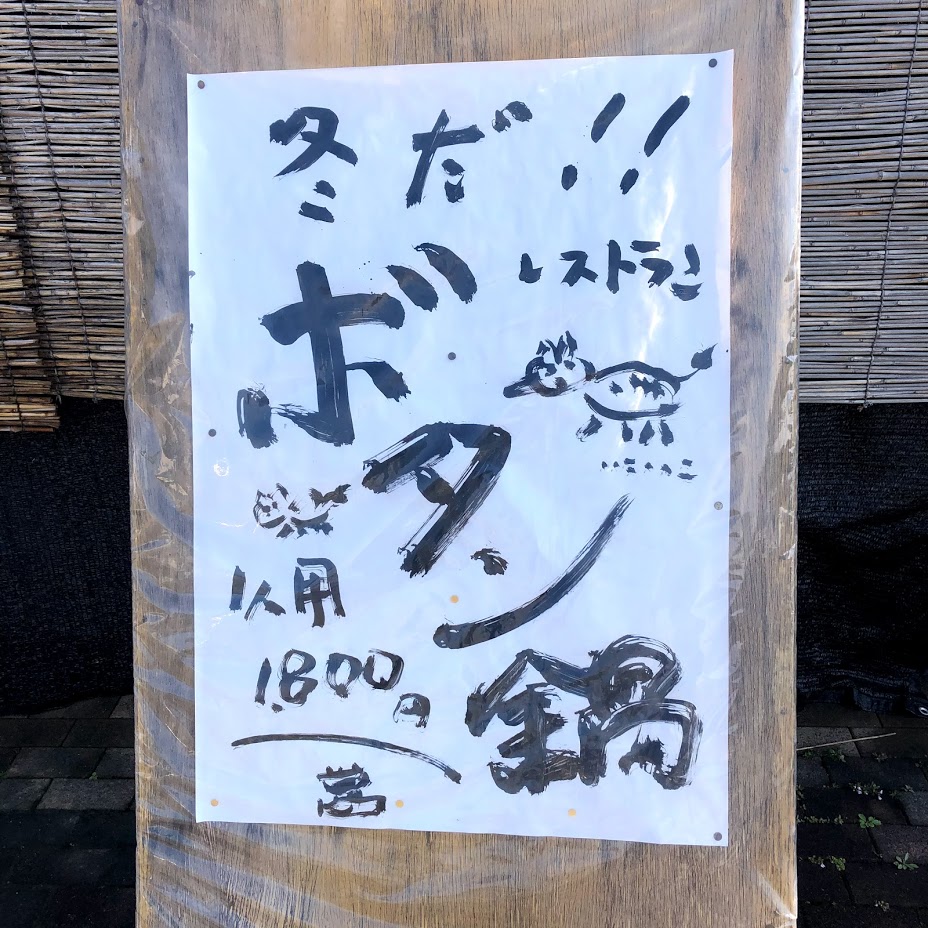 冬だ!!
レストラン
ボタン鍋
1人用
1,800円